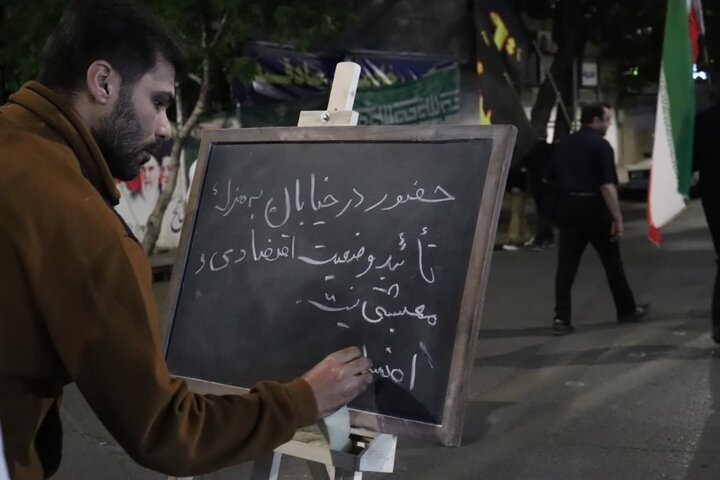 حضور در خیابان به منزلهٔ
تأئید وضعیت اقتصادی و
معیشتی نیست